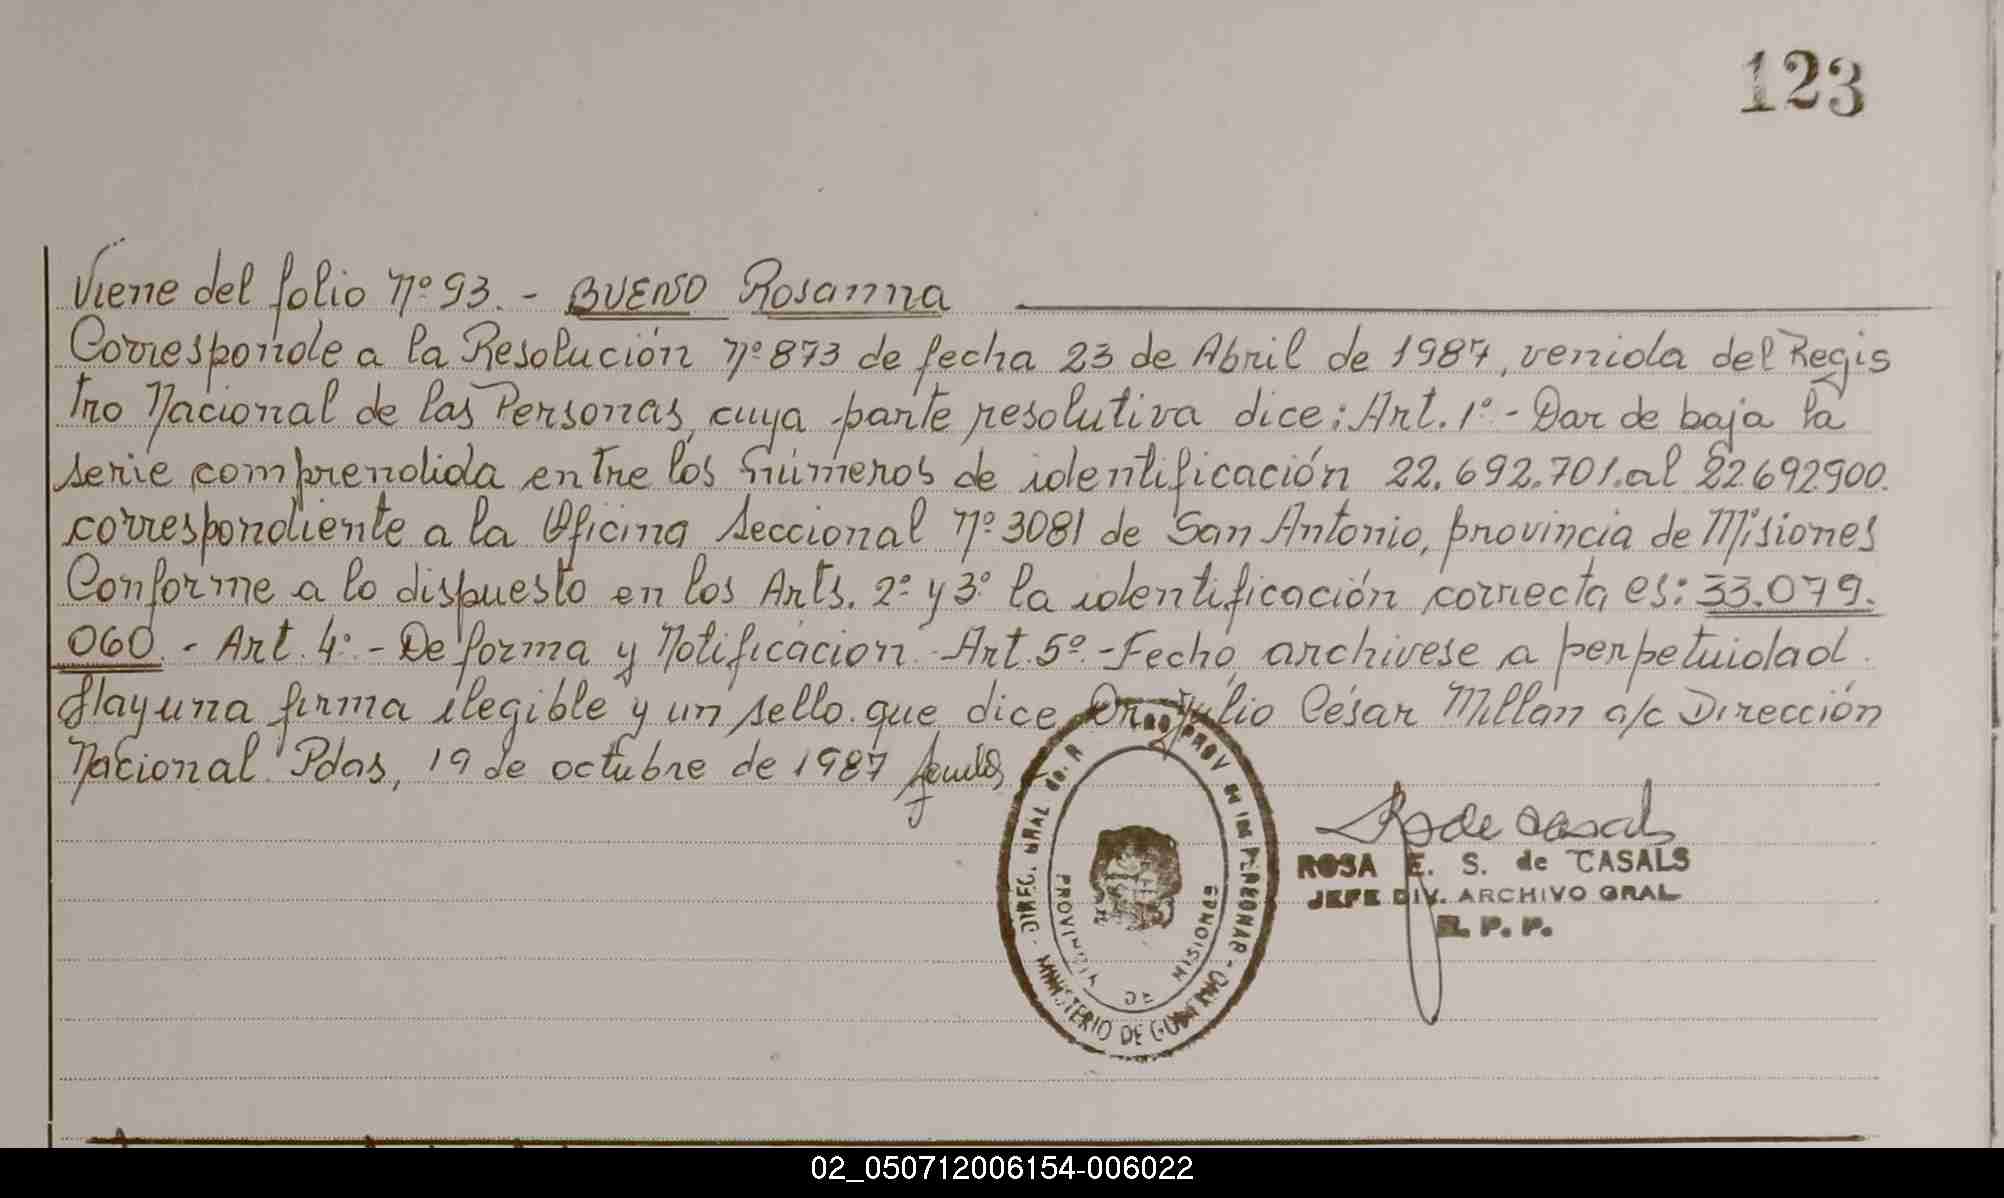 123
Viene del folio Nº 93. - BUENO Rosanna
Corresponde a la Resolución Nº 873 de fecha 23 de Abril de 1987, venida del Regis
tro Nacional de las Personas, cuya parte resolutiva dice: Art. 1º - Dar de baja la
serie comprendida entre los números de identificación 22.692.701. al 22692900.
correspondiente a la Oficina Seccional Nº 3081 de San Antonio, provincia de Misiones
Conforme a lo dispuesto en los Arts. 2º y 3º la identificación correcta es: 33.079.
060. - Art. 4º - De forma y Notificación. - Art. 5º. - Fecho, archivese a perpetuidad.
Hay una firma ilegible y un sello que dice Dr. Julio César Millan a/c Dirección
Nacional. Pdas, 19 de octubre de 1987
R de Casals
ROSA E. S. de CASALS
JEFE DIV. ARCHIVO GRAL
R. P. P.
PROVINCIA DE MISIONES
MINISTERIO DE
02_050712006154-006022